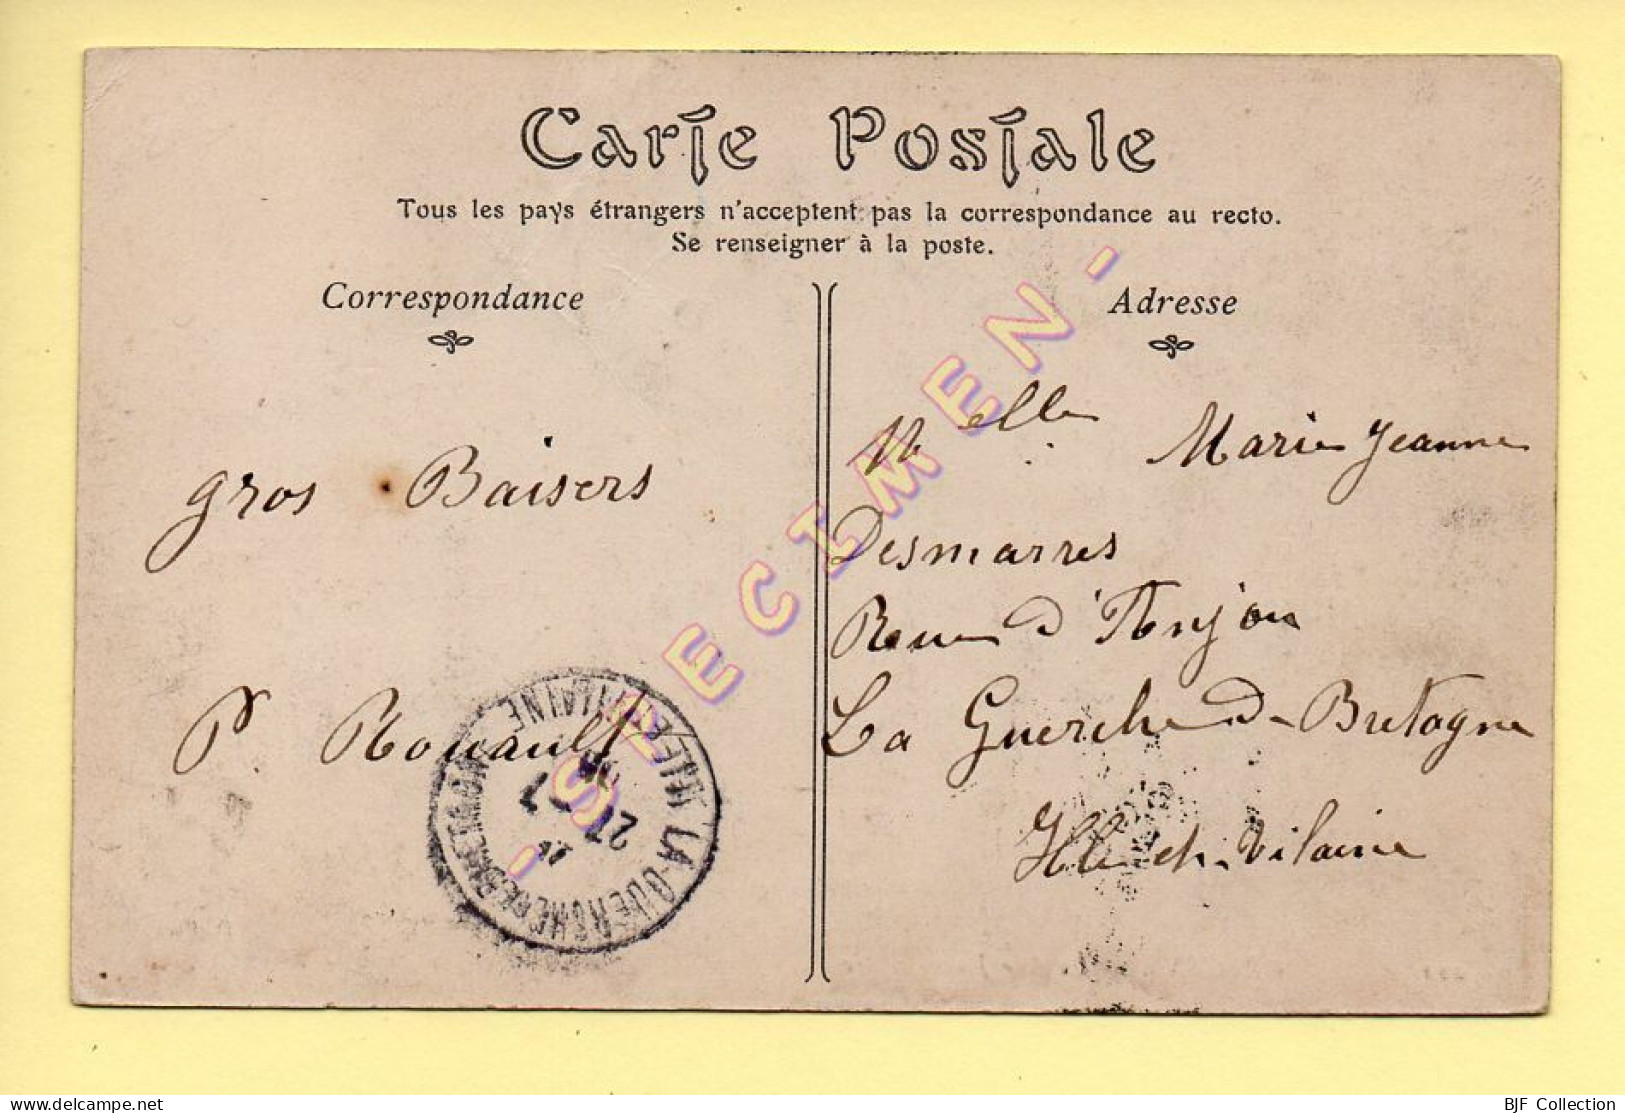 Carte Postale
Tous les pays étrangers n'acceptent pas la correspondance au recto.
Se renseigner à la poste.
Correspondance
Adresse
gros Baisers
P. Rouault
Melle Marie Jeanne
Desmarres
Rue d'Anjou
La Guerche De Bretagne
Ille et Vilaine
LA GUERCHE DE BRETAGNE ILLE-ET-VILAINE
27
- SPECIMEN -
www.delcampe.net
BJF Collection